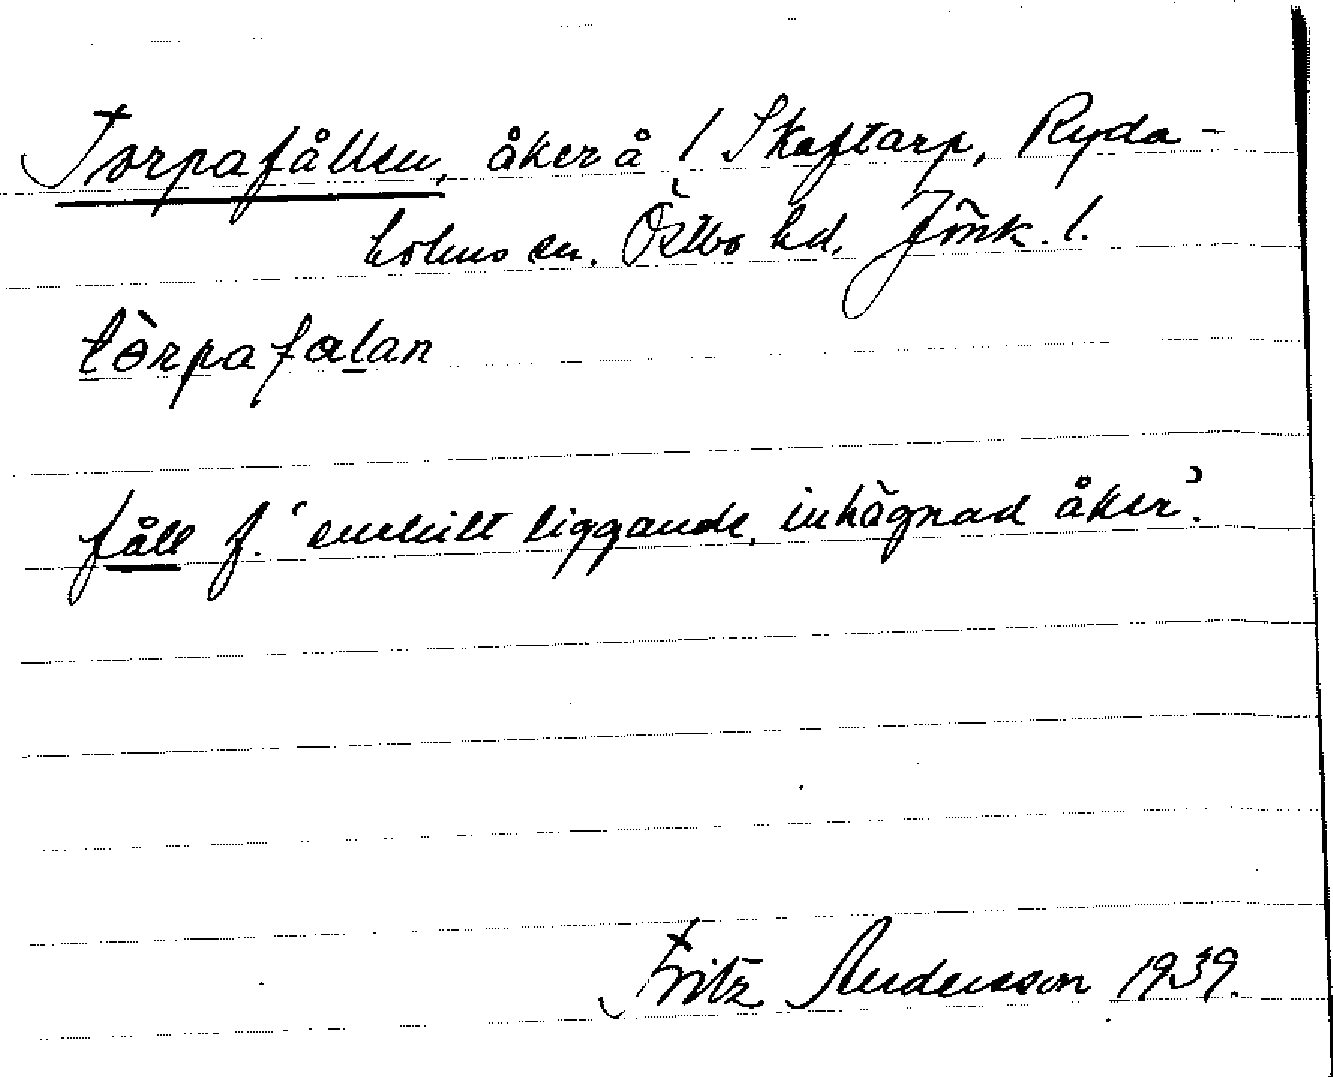 Torpafållen, åker å 1 Skaftarp, Ryda-
holms sn. Östbo hd. Jönk. l.
tòrpafalan
fåll f. 'enskilt liggande, inhägnad åker'.
Fritz Andersson 1939.